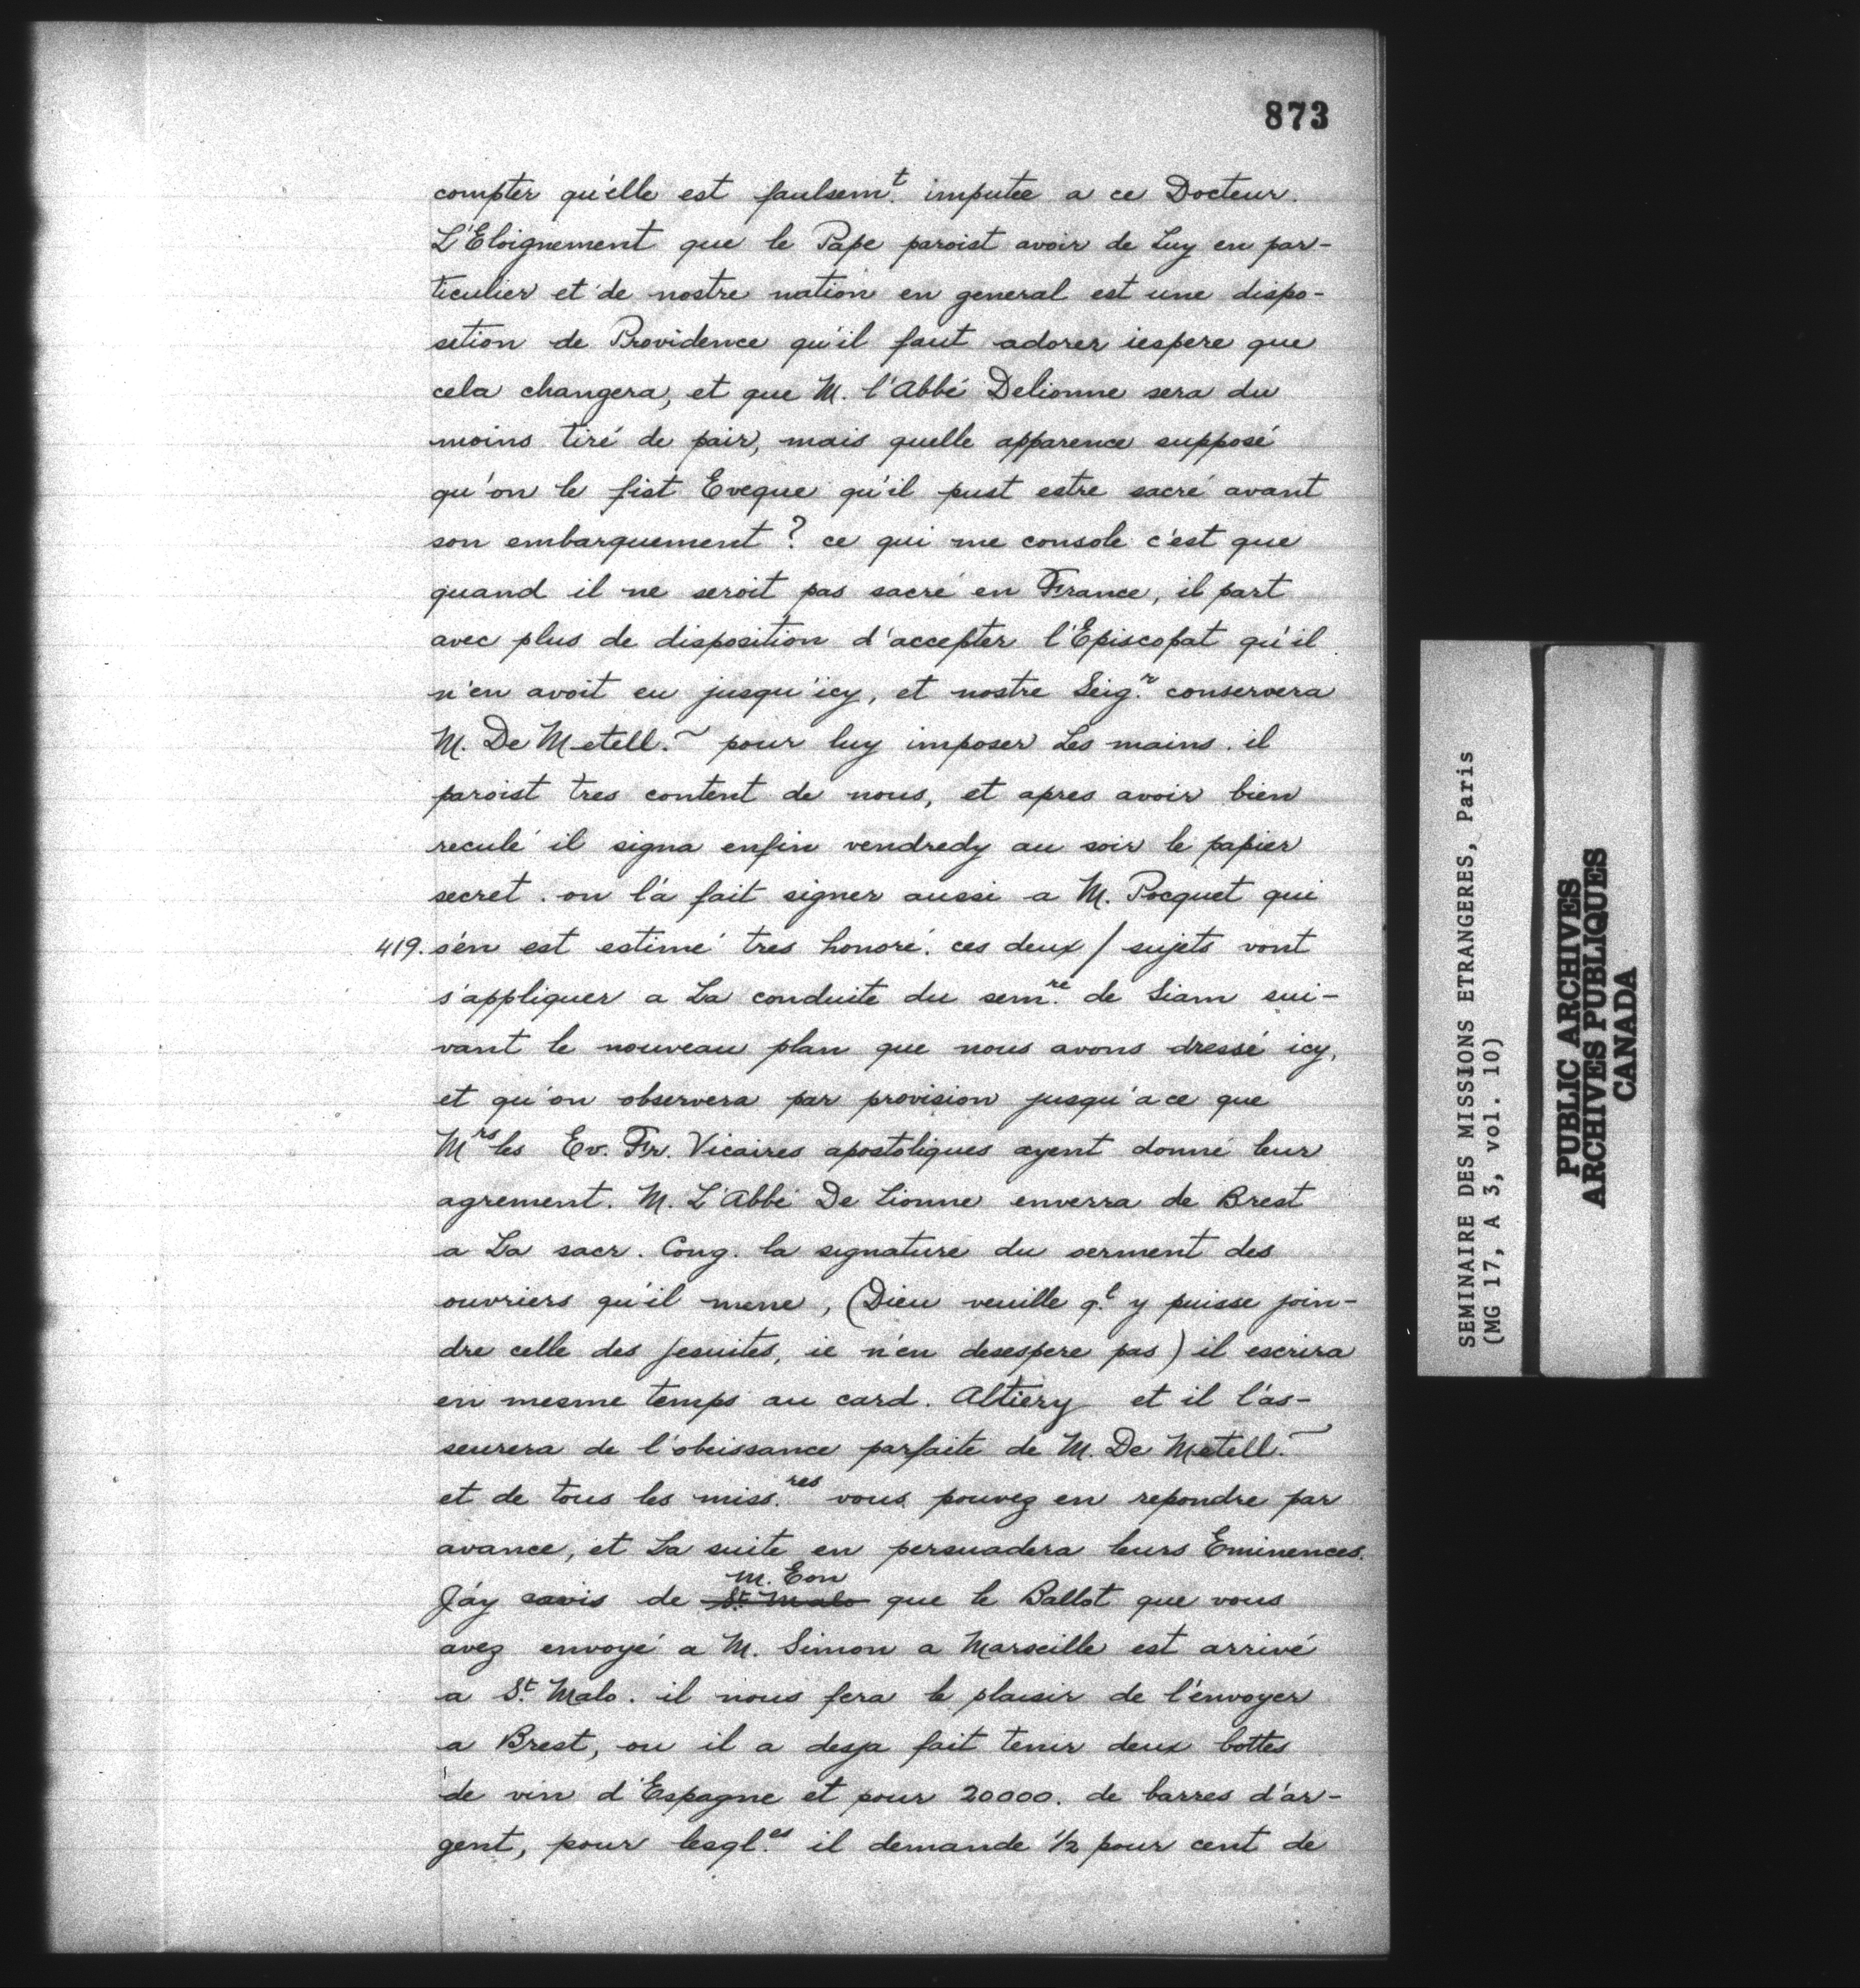 873
compter qu'elle est faulsem.t imputée a ce Docteur.
L'Eloignement que le Pape paroist avoir de Luy en par-
ticulier et de nostre nation en general est une dispo-
sition de Providence qu'il faut adorer iespere que
cela changera, et que M. l'Abbé Delionne sera du
moins tiré de pair, mais quelle apparence supposé
qu'on le fist Eveque qu'il pust estre sacré avant
son embarquement ? ce qui me console c'est que
quand il ne seroit pas sacré en France, il part
avec plus de disposition d'accepter l'Episcopat qu'il
n'en avoit eu jusqu'icy, et nostre Seig.r conservera
M. De Metell.~ pour luy imposer Les mains. il
paroist tres content de nous, et apres avoir bien
reculé il signa enfin vendredy au soir le papier
secret. on l'a fait signer aussi a M. Pocquet qui
419. s'en est estimé tres honoré. ces deux / sujets vont
s'appliquer a La conduite du sem.re de Siam sui-
vant le nouveau plan que nous avons dressé icy,
et qu'on observera par provision jusqu'a ce que
Mrs les Ev. Fr. Vicaires apostoliques ayent donné leur
agrement. M. L'Abbé De Lionne enverra de Brest
a La sacr. Cong. la signature du serment des
ouvriers qu'il mene, (Dieu veuille q.l y puisse join-
dre celle des Jesuites, ie n'en desespere pas) il escrira
en mesme temps au card. Altiery et il l'as-
seurera de l'obeissance parfaite de M. De Metell.~
et de tous les miss.res vous pouvez en repondre par
avance, et La suite en persuadera leurs Eminences.
M. Eon
J'ay avis de St. Malo que le Ballot que vous
avez envoyé a M. Simon a Marseille est arrivé
a St. Malo. il nous fera le plaisir de l'envoyer
a Brest, ou il a desja fait tenir deux bottes
de vin d'Espagne et pour 20000. de barres d'ar-
gent, pour lesql.es il demande 1/2 pour cent de
SEMINAIRE DES MISSIONS ETRANGERES, Paris
(MG 17, A 3, vol. 10)
PUBLIC ARCHIVES
ARCHIVES PUBLIQUES
CANADA